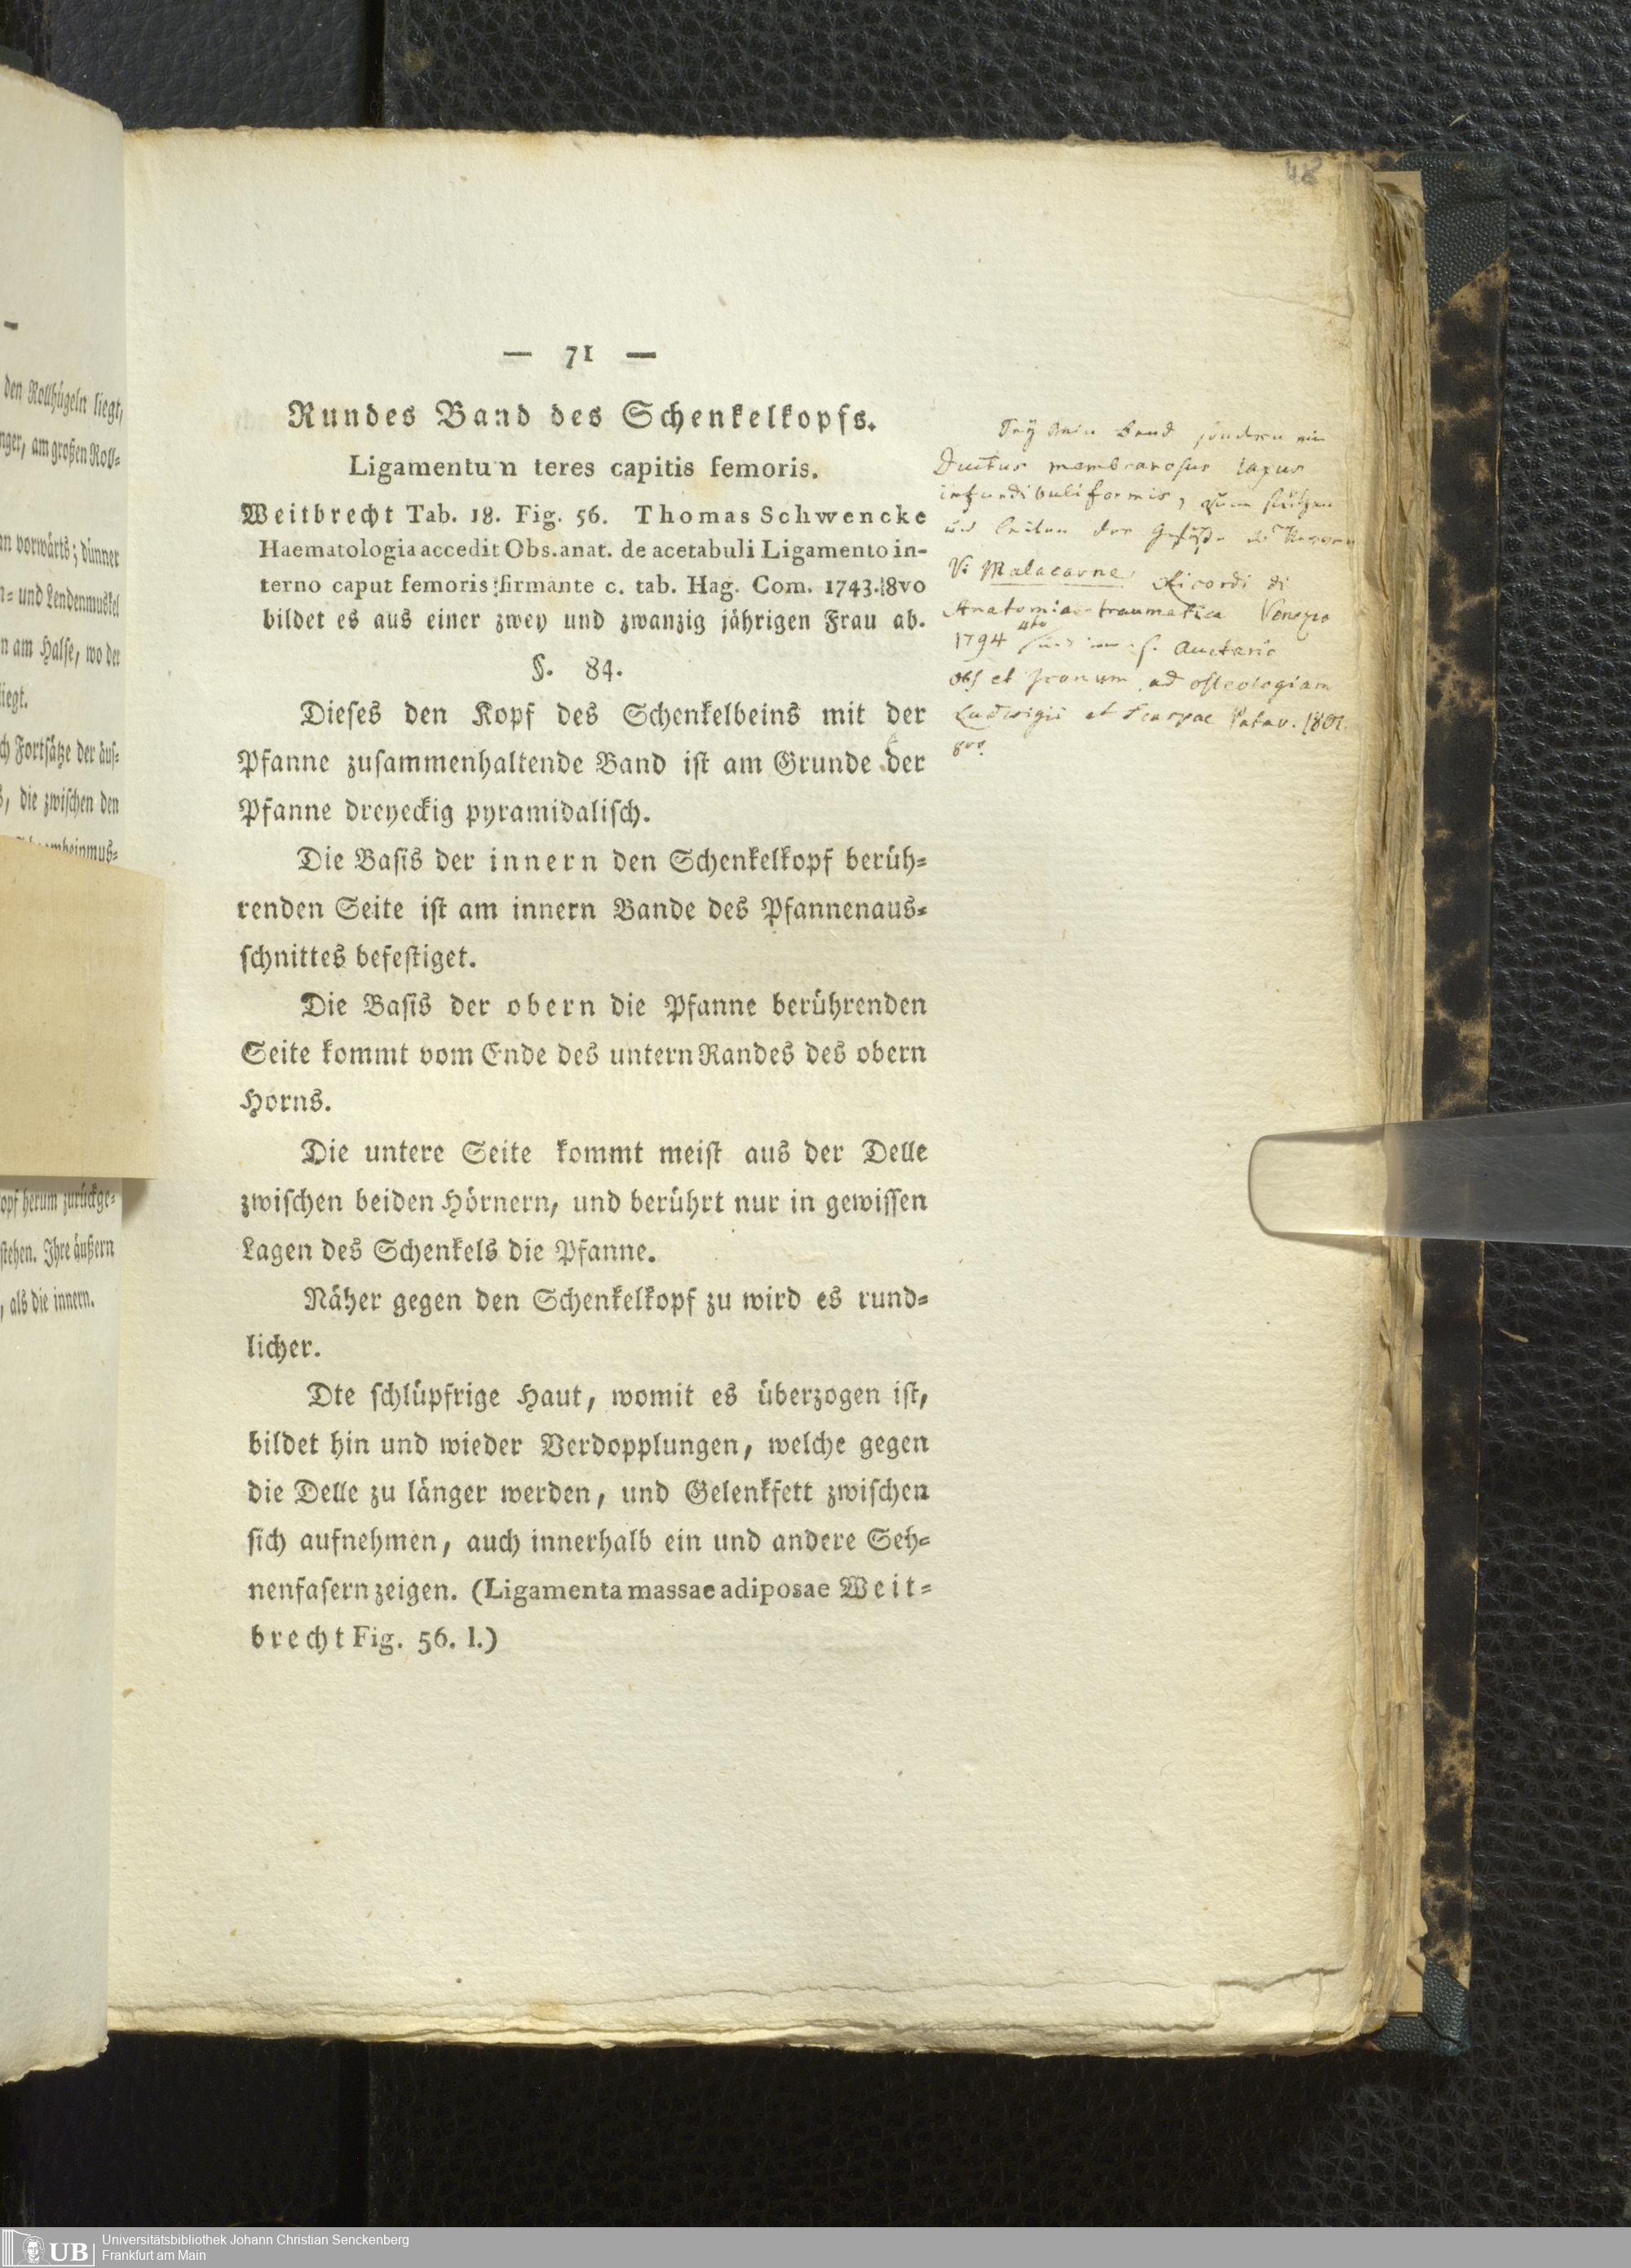 48
— 71 —
Rundes Band des Schenkelkopfs.
Ligamentum teres capitis femoris.
Weitbrecht Tab. 18. Fig. 56. Thomas Schwencke
Haematologia accedit Obs. anat. de acetabuli Ligamento in-
terno caput femoris firmante c. tab. Hag. Com. 1743. 8vo
bildet es aus einer zwey und zwanzig jährigen Frau ab.
§. 84.
Dieses den Kopf des Schenkelbeins mit der
Pfanne zusammenhaltende Band ist am Grunde der
Pfanne dreyeckig pyramidalisch.
Die Basis der innern den Schenkelkopf berüh-
renden Seite ist am innern Bande des Pfannenaus-
schnittes befestiget.
Die Basis der obern die Pfanne berührenden
Seite kommt vom Ende des untern Randes des obern
Horns.
Die untere Seite kommt meist aus der Delle
zwischen beiden Hörnern, und berührt nur in gewissen
Lagen des Schenkels die Pfanne.
Näher gegen den Schenkelkopf zu wird es rund-
licher.
Dte schlüpfrige Haut, womit es überzogen ist,
bildet hin und wieder Verdopplungen, welche gegen
die Delle zu länger werden, und Gelenkfett zwischen
sich aufnehmen, auch innerhalb ein und andere Seh-
nenfasern zeigen. (Ligamenta massae adiposae Weit-
brecht Fig. 56. l.)
Sey kein Band sondern ein
Ductus membranosus laxus
infundibuliformis, zum stützen
und leiten der Gefäße u Nerven
V. Malacarne Ricordi di
Anatomia traumatica Venezia
1794 4to s. Auctario
obs et Iconum ad osteologiam
Ludwigii et Scarpae Patav. 1801.
8vo.
den Rollhügeln liegt,
nger, am großen Roll-
n vorwärts; dünner
n- und Lendenmuskel
n am Halse, wo der
liegt.
ch Fortsätze der äus-
s, die zwischen den
opf herum zurückge-
stehen. Ihre äußern
, als die innern.
UB
Universitätsbibliothek Johann Christian Senckenberg
Frankfurt am Main